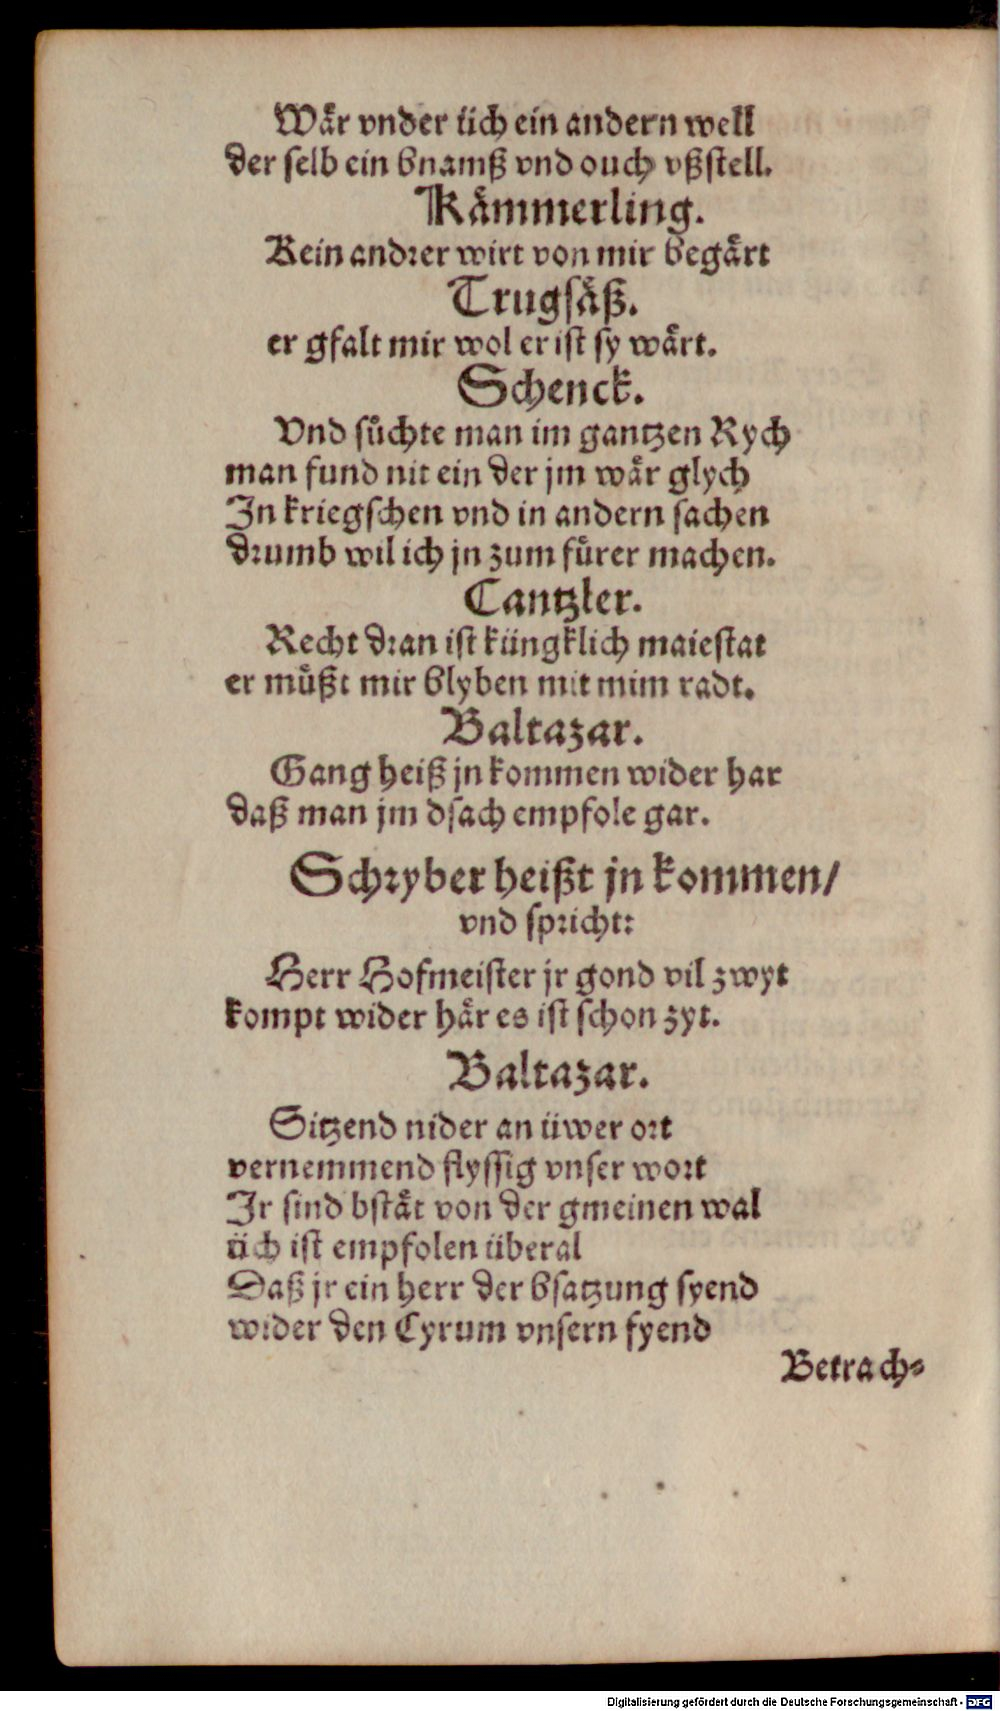 Wår vnder üch ein andern well
der selb ein bnamß vnd ouch vßstell.
Kåmmerling.
Kein andrer wirt von mir begårt
Trugsåß.
er gfalt mir wol er ist sy wårt.
Schenck.
Vnd sůchte man im gantzen Rych
man fund nit ein der jm wår glych
In kriegschen vnd in andern sachen
drumb wil ich jn zum fůrer machen.
Cantzler.
Recht dran ist küngklich maiestat
er můßt mir blyben mit mim radt.
Baltazar.
Gang heiß jn kommen wider har
daß man jm dsach empfole gar.
Schryber heißt jn kommen/
vnd spricht:
Herr Hofmeister jr gond vil zwyt
kompt wider hår es ist schon zyt.
Baltazar.
Sitzend nider an üwer ort
vernemmend flyssig vnser wort
Ir sind bståt von der gmeinen wal
üch ist empfolen überal
Daß jr ein herr der bsatzung syend
wider den Cyrum vnsern fyend
Betrach⸗
Digitalisierung gefördert durch die Deutsche Forschungsgemeinschaft - DFG